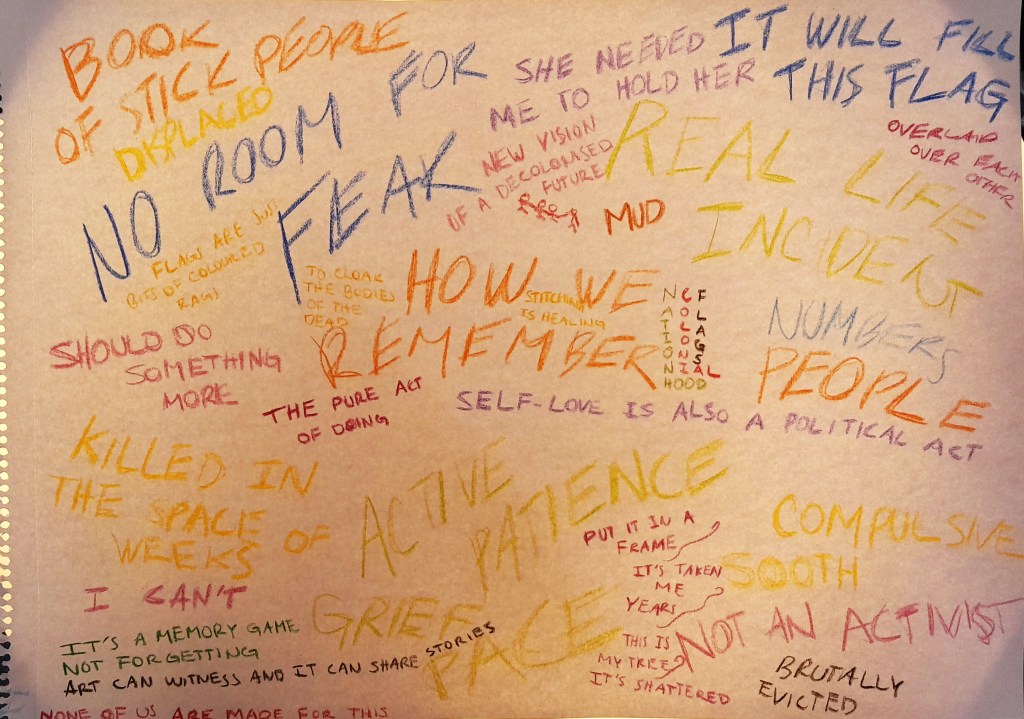 BOOK
OF STICK PEOPLE
DISPLACED
NO ROOM FOR
FEAK
SHE NEEDED
ME TO HOLD HER
IT WILL FILL
THIS FLAG
OVERLAID
OVER EACH
OTHER
NEW VISION
OF A DECOLONASED
FUTURE
MUD
REAL LIFE
INCIDENT
FLAGS ARE JUST
BITS OF COLOURED
RAGS
TO CLOAK
THE BODIES
OF THE
DEAD
HOW WE
REMEMBER
STITCHING
IS HEALING
NATIONHOOD
COLONIAL
FLAGS
NUMBERS
PEOPLE
SHOULD DO
SOMETHING
MORE
THE PURE ACT
OF DOING
SELF-LOVE IS ALSO A POLITICAL ACT
KILLED IN
THE SPACE OF
WEEKS
ACTIVE
PATIENCE
PUT IT IN A
FRAME
IT'S TAKEN
ME
YEARS
THIS IS
MY TREE
IT'S SHATTERED
COMPULSIVE
SOOTH
I CAN'T
GRIEF
PACE
NOT AN ACTIVIST
IT'S A MEMORY GAME
NOT FORGETTING
ART CAN WITNESS AND IT CAN SHARE STORIES
BRUTALLY
EVICTED
NONE OF US ARE MADE FOR THIS